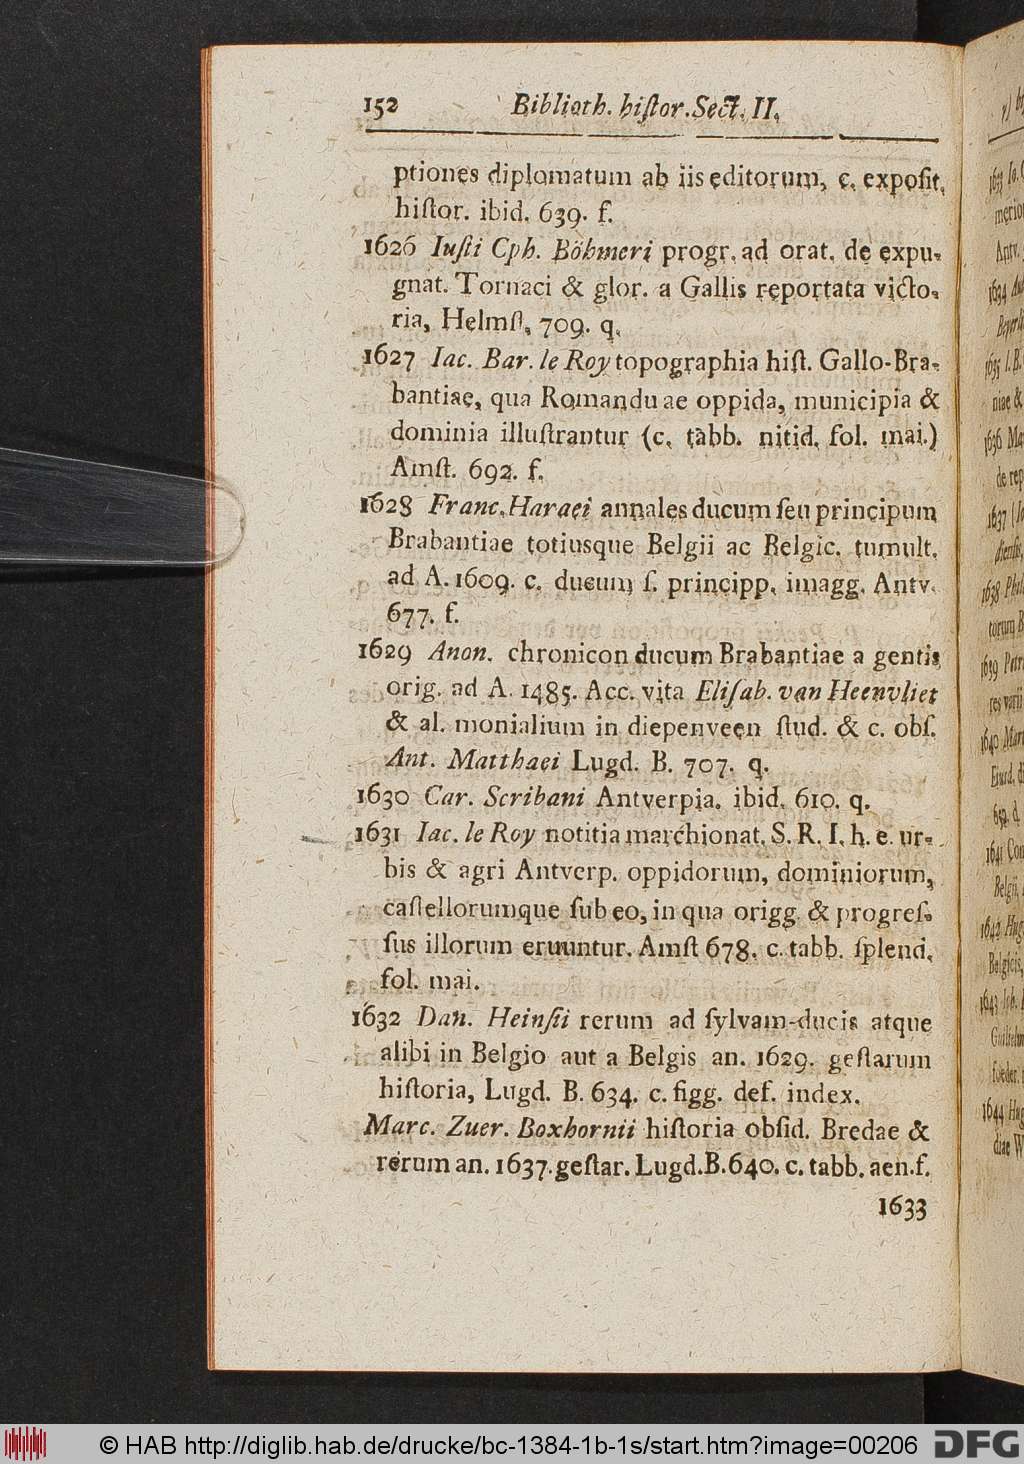 152 Biblioth. hiſtor. Sect. II.
ptiones diplomatum ab iis editorum, c. expoſit.
hiſtor. ibid. 639. f.
1626 Iuſti Cph. Böhmeri progr. ad orat. de expu-
gnat. Tornaci & glor. a Gallis reportata victo-
ria, Helmſt. 709. q.
1627 Iac. Bar. le Roy topographia hiſt. Gallo-Bra-
bantiae, qua Romanduae oppida, municipia &
dominia illuſtrantur (c. tabb. nitid. fol. mai.)
Amſt. 692. f.
1628 Franc. Haraei annales ducum ſeu principum
Brabantiae totiusque Belgii ac Belgic. tumult.
ad A. 1609. c. ducum ſ. principp. imagg. Antv.
677. f.
1629 Anon. chronicon ducum Brabantiae a gentis
orig. ad A. 1485. Acc. vita Eliſab. van Heenvliet
& al. monialium in diepenveen ſtud. & c. obſ.
Ant. Matthaei Lugd. B. 707. q.
1630 Car. Scribani Antverpia. ibid. 610. q.
1631 Iac. le Roy notitia marchionat. S. R. I. h. e. ur-
bis & agri Antverp. oppidorum, dominiorum,
caſtellorumque ſub eo, in qua origg. & progreſ-
ſus illorum eruuntur. Amſt 678. c. tabb. ſplend.
fol. mai.
1632 Dan. Heinſii rerum ad ſylvam-ducis atque
alibi in Belgio aut a Belgis an. 1629. geſtarum
hiſtoria, Lugd. B. 634. c. figg. def. index.
Marc. Zuer. Boxhornii hiſtoria obſid. Bredae &
rerum an. 1637. geſtar. Lugd. B. 640. c. tabb. aen. f.
1633
© HAB http://diglib.hab.de/drucke/bc-1384-1b-1s/start.htm?image=00206 DFG